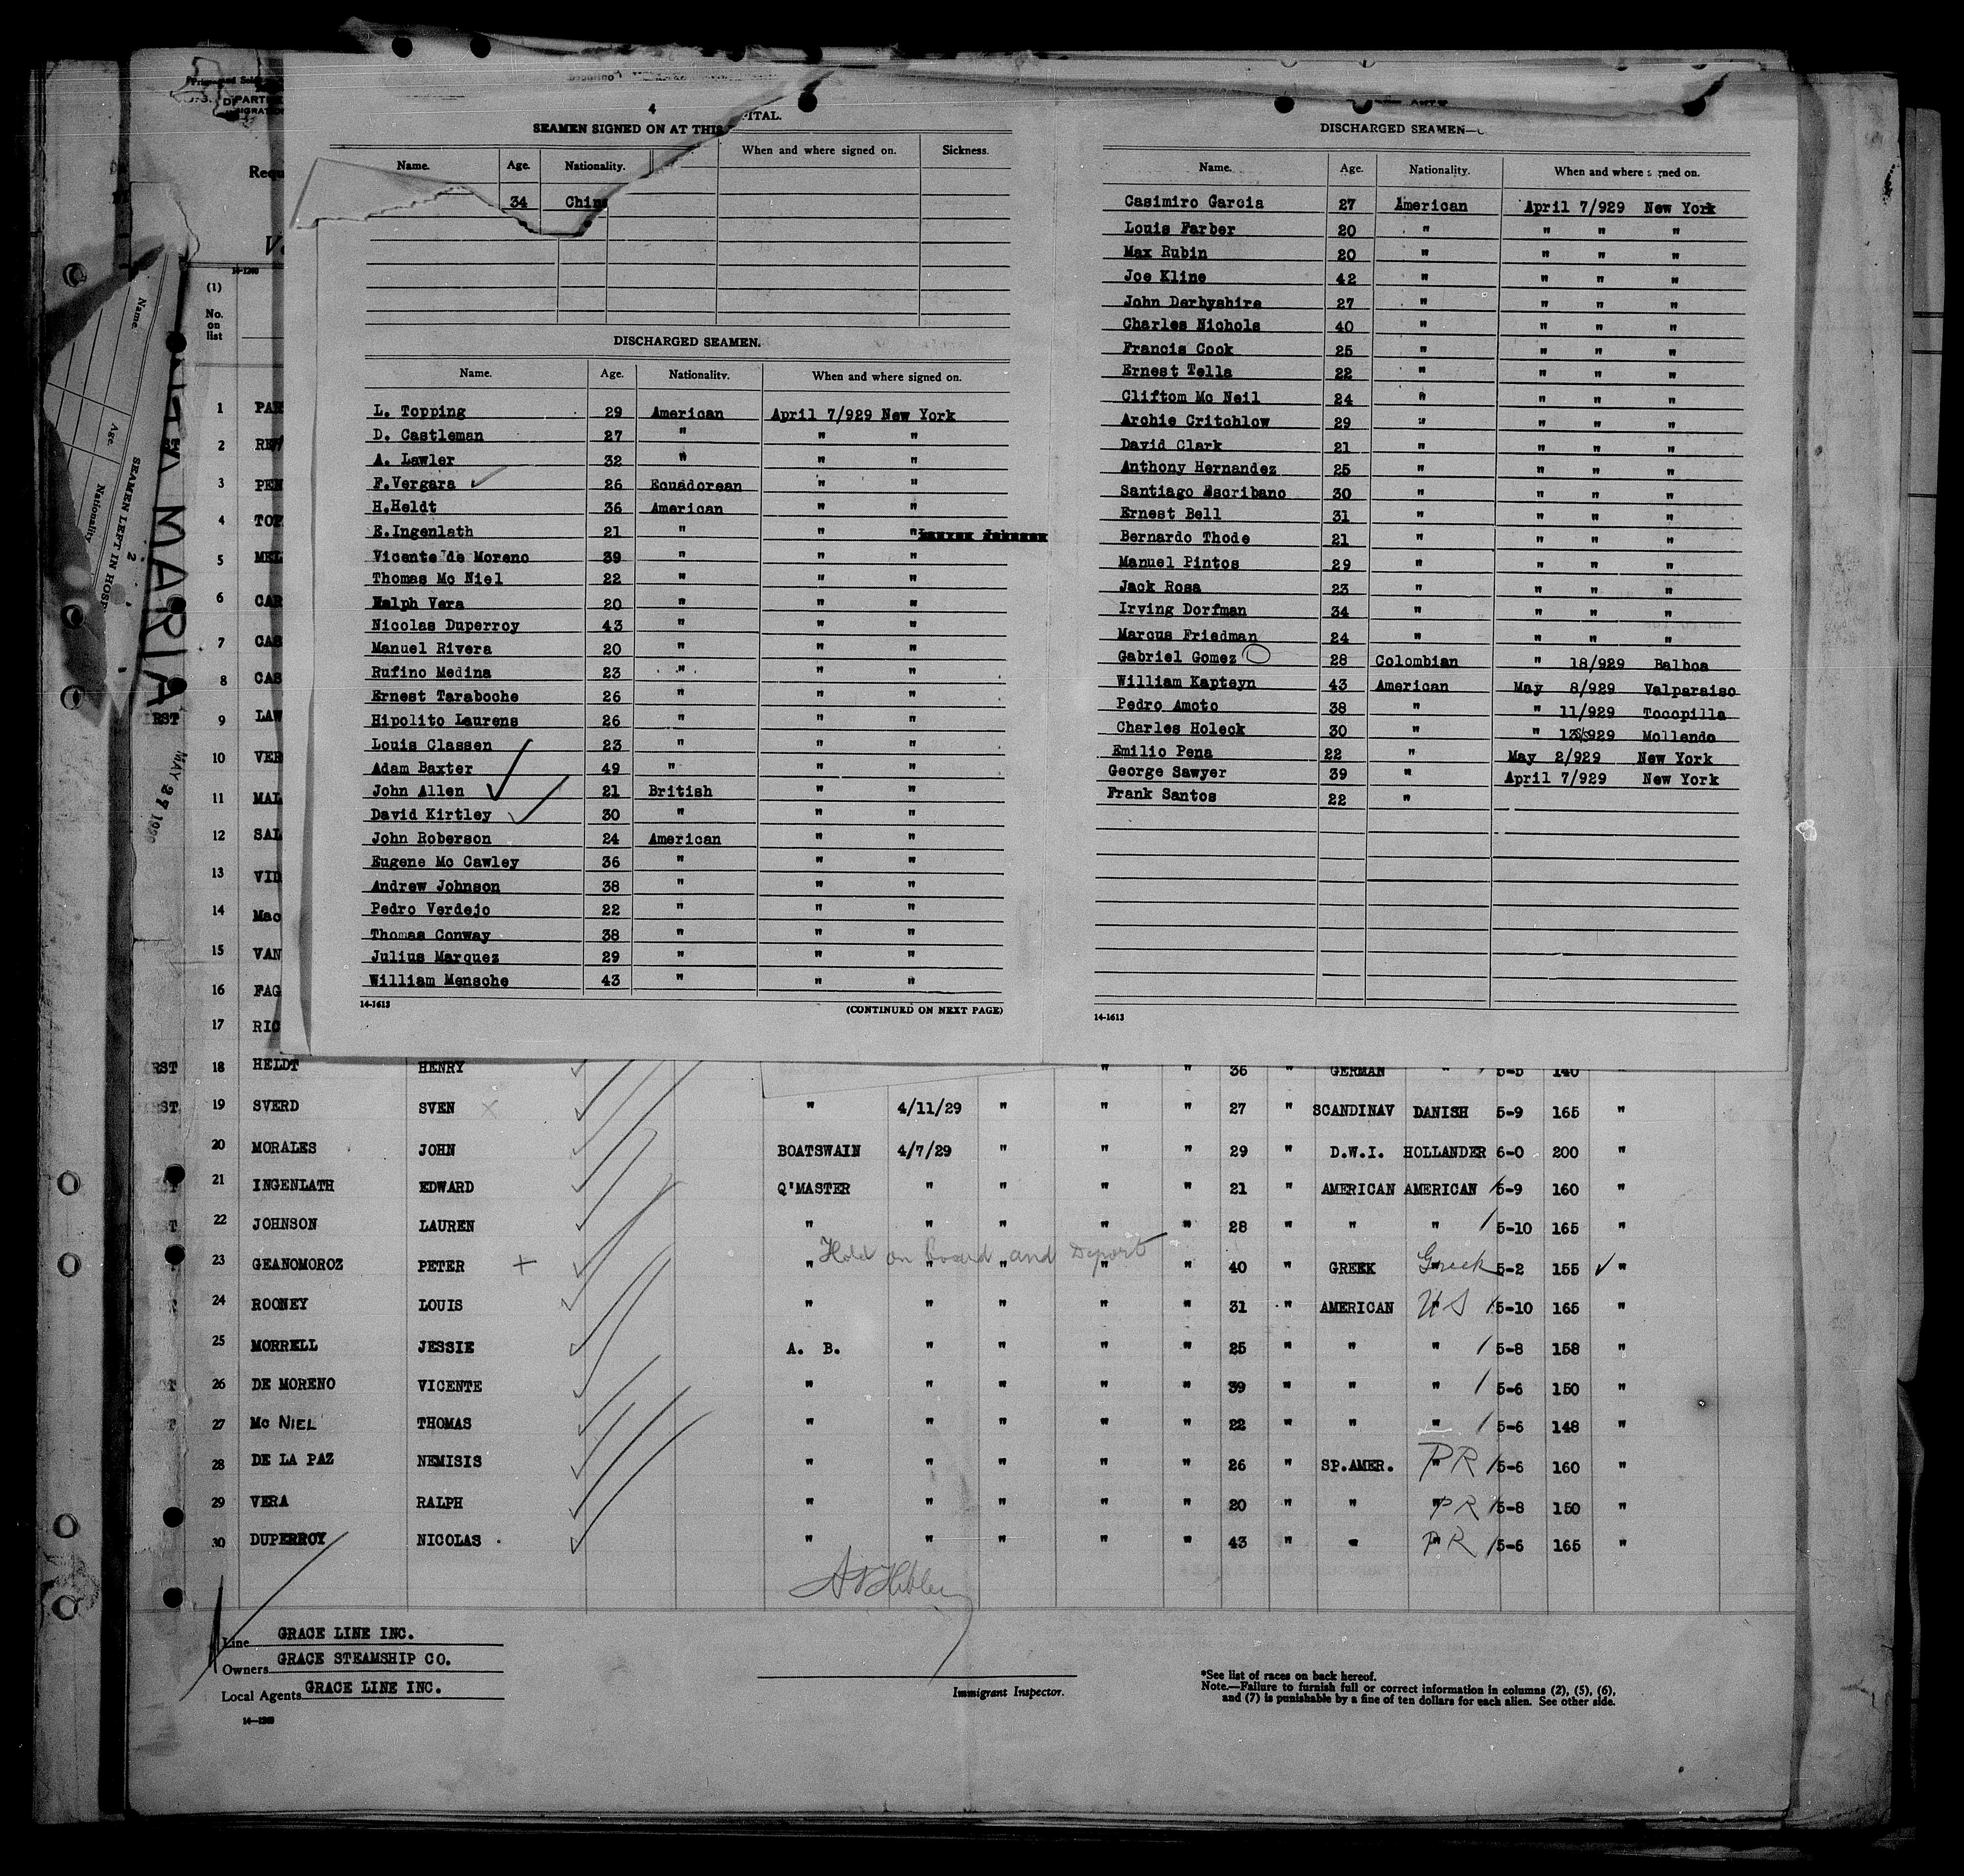 4
SEAMEN SIGNED ON AT THIS
PITAL.
Name. Age. Nationality. When and where signed on. Sickness.
34 Chin
DISCHARGED SEAMEN.
Name. Age. Nationality. When and where signed on.
L. Topping 29 American April 7/929 New York
D. Castleman 27 " " "
A. Lawler 32 " " "
F.Vergara 26 Ecuadorean " "
H.Heldt 36 American " "
E.Ingenlath 21 " " "
Vicente de Moreno 39 " " "
Thomas Mc Niel 22 " " "
Ralph Vera 20 " " "
Nicolas Duperroy 43 " " "
Manuel Rivera 20 " " "
Rufino Medina 23 " " "
Ernest Taraboche 26 " " "
Hipolito Laurens 26 " " "
Louis Classen 23 " " "
Adam Baxter 49 " " "
John Allen 21 British " "
David Kirtley 30 " " "
John Roberson 24 American " "
Eugene Mc Cawley 36 " " "
Andrew Johnson 38 " " "
Pedro Verdejo 22 " " "
Thomas Conway 38 " " "
Julius Marquez 29 " " "
William Mensche 43 " " "
14-1613 (CONTINUED ON NEXT PAGE)
DISCHARGED SEAMEN—
Name. Age. Nationality. When and where signed on.
Casimiro Garcia 27 American April 7/929 New York
Louis Farber 20 " " " "
Max Rubin 20 " " " "
Joe Kline 42 " " " "
John Derbyshire 27 " " " "
Charles Nichols 40 " " " "
Francis Cook 25 " " " "
Ernest Tella 22 " " " "
Cliftom Mc Neil 24 " " " "
Archie Critchlow 29 " " " "
David Clark 21 " " " "
Anthony Hernandez 25 " " " "
Santiago Escribano 30 " " " "
Ernest Bell 31 " " " "
Bernardo Thode 21 " " " "
Manuel Pintos 29 " " " "
Jack Rosa 23 " " " "
Irving Dorfman 34 " " " "
Marcus Friedman 24 " " " "
Gabriel Gomez 28 Colombian " 18/929 Balboa
William Kapteyn 43 American May 8/929 Valparaiso
Pedro Amoto 38 " " 11/929 Tocopilla
Charles Holeck 30 " " 13/929 Mollendo
Emilio Pena 22 " May 2/929 New York
George Sawyer 39 " April 7/929 New York
Frank Santos 22 "
14-1613
Requ
14-1240
(1)
No.
on
list
1 PAR
2 REY
3 PEN
4 TOP
5 MEL
6 CAR
7 CAS
8 CAS
9 LAW
10 VER
11 MAL
12 SAL
13 VID
14 Mac
15 VAN
16 FAG
17 RIC
Name.
Age.
Nationality
SEAMEN LEFT IN HOSP
2
MARIA
MAY 27 19
18 HELDT HENRY " " 36 " GERMAN " 5-5 140
19 SVERD SVEN " 4/11/29 " " " 27 " SCANDINAV DANISH 5-9 165 "
20 MORALES JOHN BOATSWAIN 4/7/29 " " " 29 " D.W.I. HOLLANDER 6-0 200 "
21 INGENLATH EDWARD Q'MASTER " " " " 21 " AMERICAN AMERICAN 5-9 160 "
22 JOHNSON LAUREN " " " " " 28 " " " 5-10 165 "
Hold on board and Deport
23 GEANOMOROZ PETER " " " " " 40 " GREEK Greek 5-2 155 "
24 ROONEY LOUIS " " " " " 31 " AMERICAN US 5-10 165 "
25 MORRELL JESSIE A. B. " " " " 25 " " " 5-8 158 "
26 DE MORENO VICENTE " " " " " 39 " " " 5-6 150 "
27 Mc NIEL THOMAS " " " " " 22 " " " 5-6 148 "
28 DE LA PAZ NEMISIS " " " " " 26 " SP.AMER. PR 5-6 160 "
29 VERA RALPH " " " " " 20 " " PR 5-8 150 "
30 DUPERROY NICOLAS " " " " " 43 " " PR 5-6 165 "
Line GRACE LINE INC.
Owners GRACE STEAMSHIP CO.
Local Agents GRACE LINE INC.
Immigrant Inspector.
*See list of races on back hereof.
Note.—Failure to furnish full or correct information in columns (2), (5), (6),
and (7) is punishable by a fine of ten dollars for each alien. See other side.